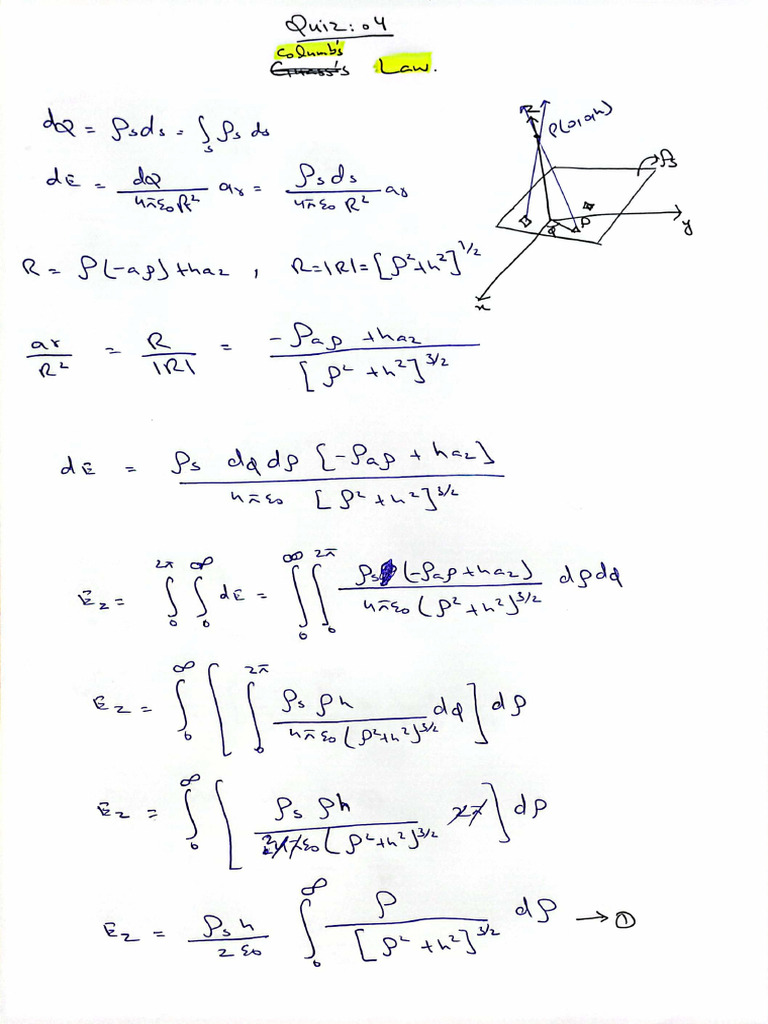 Quiz: 04
Columb's
Guass's Law.
dQ = ρs ds = ∫s ρs ds
dE = dQ / 4πε0R² ar = ρs ds / 4πε0 R² ar
R = ρ(-aρ) + haz , R = |R| = [ρ²+h²]^1/2
ar / R² = R / |R| = -ρaρ + haz / [ρ² + h²]^3/2
dE = ρs dφ dρ [-ρaρ + haz] / 4πε0 [ρ² + h²]^3/2
Ez = ∫0^2π ∫0^∞ dE = ∫0^∞ ∫0^2π ρs (-ρaρ + haz) / 4πε0 (ρ² + h²)^3/2 dρdφ
Ez = ∫0^∞ [ ∫0^2π ρs ρh / 4πε0 (ρ²+h²)^3/2 dφ ] dρ
Ez = ∫0^∞ [ ρs ρh / 2 4πε0 (ρ²+h²)^3/2 2π ] dρ
Ez = ρs h / 2ε0 ∫0^∞ ρ / [ρ² + h²]^3/2 dρ → ①
R
P(0,0,h)
ρs
φ
ρ
y
x